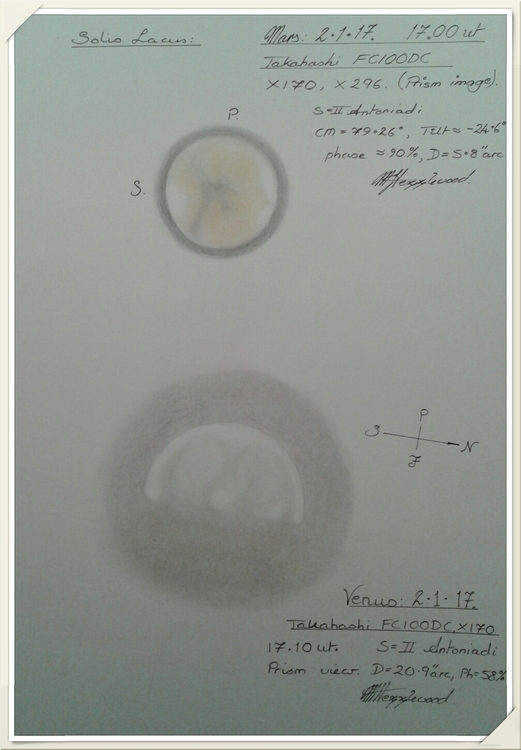 Solis Lacus:
Mars: 2·1·17. 17.00 ut
Takahashi FC100DC
X170, X296. (Prism image).
S=II Antoniadi
CM = 79·26°, Tilt ≈ -24·6°
phase ≈ 90%, D=5·8"arc
P.
S.
P
S N
F
Venus: 2·1·17.
Takahashi FC100DC, X170
17.10 ut. S=II Antoniadi
Prism view. D=20·9"arc, Ph=58%